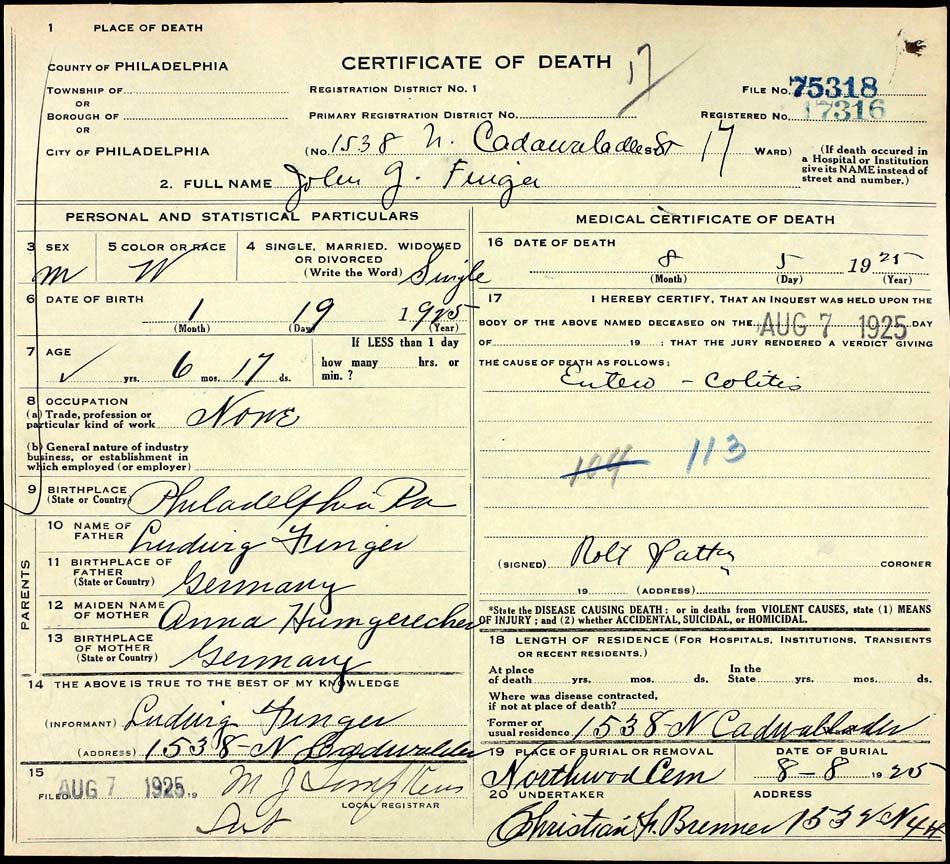 1 PLACE OF DEATH
COUNTY OF PHILADELPHIA
TOWNSHIP OF
OR
BOROUGH OF
OR
CITY OF PHILADELPHIA
CERTIFICATE OF DEATH 17
REGISTRATION DISTRICT NO. 1
PRIMARY REGISTRATION DISTRICT NO.
FILE NO. 75318
REGISTERED NO. 17316
(NO. 1538 N. Cadawalader St 17 WARD)
(If death occured in
a Hospital or Institution
give its NAME instead of
street and number.)
2. FULL NAME John J. Finger
PERSONAL AND STATISTICAL PARTICULARS
3 SEX
M
5 COLOR OR RACE
W
4 SINGLE, MARRIED. WIDOWED
OR DIVORCED
(Write the Word) Single
6 DATE OF BIRTH
1 19 1925
(Month) (Day) (Year)
7 AGE
✓ yrs. 6 mos. 17 ds.
If LESS than 1 day
how many hrs. or
min. ?
8 OCCUPATION
(a) Trade, profession or
particular kind of work None
(b) General nature of industry
business, or establishment in
which employed (or employer)
9 BIRTHPLACE
(State or Country) Philadelphia Pa
PARENTS
10 NAME OF
FATHER Ludwig Finger
11 BIRTHPLACE OF
FATHER
(State or Country) Germany
12 MAIDEN NAME
OF MOTHER Anna Humgerecher
13 BIRTHPLACE
OF MOTHER
(State or Country) Germany
14 THE ABOVE IS TRUE TO THE BEST OF MY KNOWLEDGE
(INFORMANT) Ludwig Finger
(ADDRESS) 1538-N Cadwalader
15
FILED AUG 7 1925 19 M J
LOCAL REGISTRAR
MEDICAL CERTIFICATE OF DEATH
16 DATE OF DEATH
8 5 1925
(Month) (Day) (Year)
17 I HEREBY CERTIFY, THAT AN INQUEST WAS HELD UPON THE
BODY OF THE ABOVE NAMED DECEASED ON THE AUG 7 1925 DAY
OF 19 : THAT THE JURY RENDERED A VERDICT GIVING
THE CAUSE OF DEATH AS FOLLOWS ;
Entero - colitis
104 113
(SIGNED) CORONER
19 (ADDRESS)
*State the DISEASE CAUSING DEATH : or in deaths from VIOLENT CAUSES, state (1) MEANS
OF INJURY ; and (2) whether ACCIDENTAL, SUICIDAL, or HOMICIDAL.
18 LENGTH OF RESIDENCE (FOR HOSPITALS, INSTITUTIONS, TRANSIENTS
OR RECENT RESIDENTS.)
At place
of death yrs. mos. ds.
In the
State yrs. mos. ds.
Where was disease contracted,
if not at place of death?
Former or
usual residence 1538-N Cadwallader
19 PLACE OF BURIAL OR REMOVAL
Northwood Cem
DATE OF BURIAL
8-8 1925
20 UNDERTAKER
Christian F. Brenner
ADDRESS
1532 N 4th